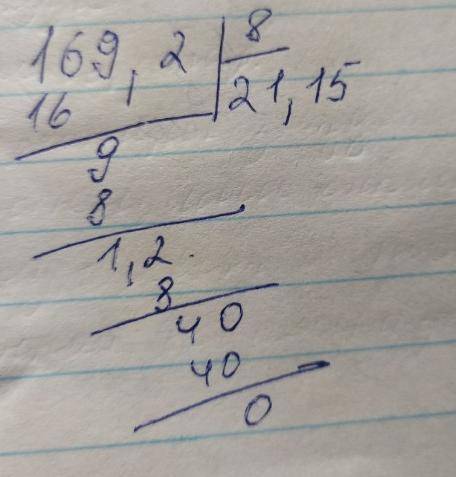 169,2 8
16 21,15
9
8
1,2
8
40
40
0